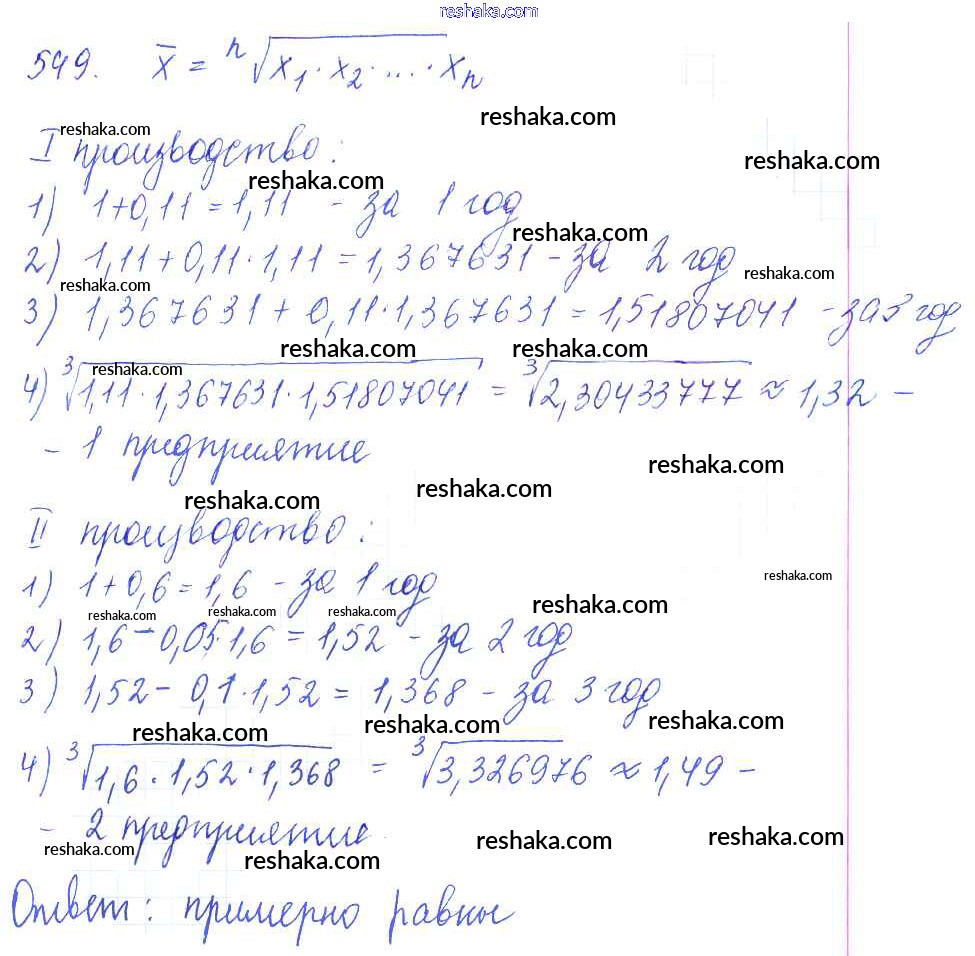 reshaka.com
549. x̄ = ⁿ√x₁·x₂·...·xₙ
reshaka.com
reshaka.com
reshaka.com
I производство:
reshaka.com
1) 1+0,11 = 1,11 - за 1 год
reshaka.com
2) 1,11 + 0,11·1,11 = 1,367631 - за 2 год
reshaka.com
reshaka.com
3) 1,367631 + 0,11·1,367631 = 1,51807041 - за 3 год
reshaka.com
reshaka.com
reshaka.com
4) ³√1,11·1,367631·1,51807041 = ³√2,30433777 ≈ 1,32 -
- 1 предприятие
reshaka.com
reshaka.com
reshaka.com
II производство:
reshaka.com
1) 1+0,6 = 1,6 - за 1 год
reshaka.com
reshaka.com
reshaka.com
reshaka.com
2) 1,6 - 0,05·1,6 = 1,52 - за 2 год
3) 1,52 - 0,1·1,52 = 1,368 - за 3 год
reshaka.com
reshaka.com
reshaka.com
4) ³√1,6·1,52·1,368 = ³√3,326976 ≈ 1,49 -
- 2 предприятие
reshaka.com
reshaka.com
reshaka.com
reshaka.com
Ответ: примерно равны